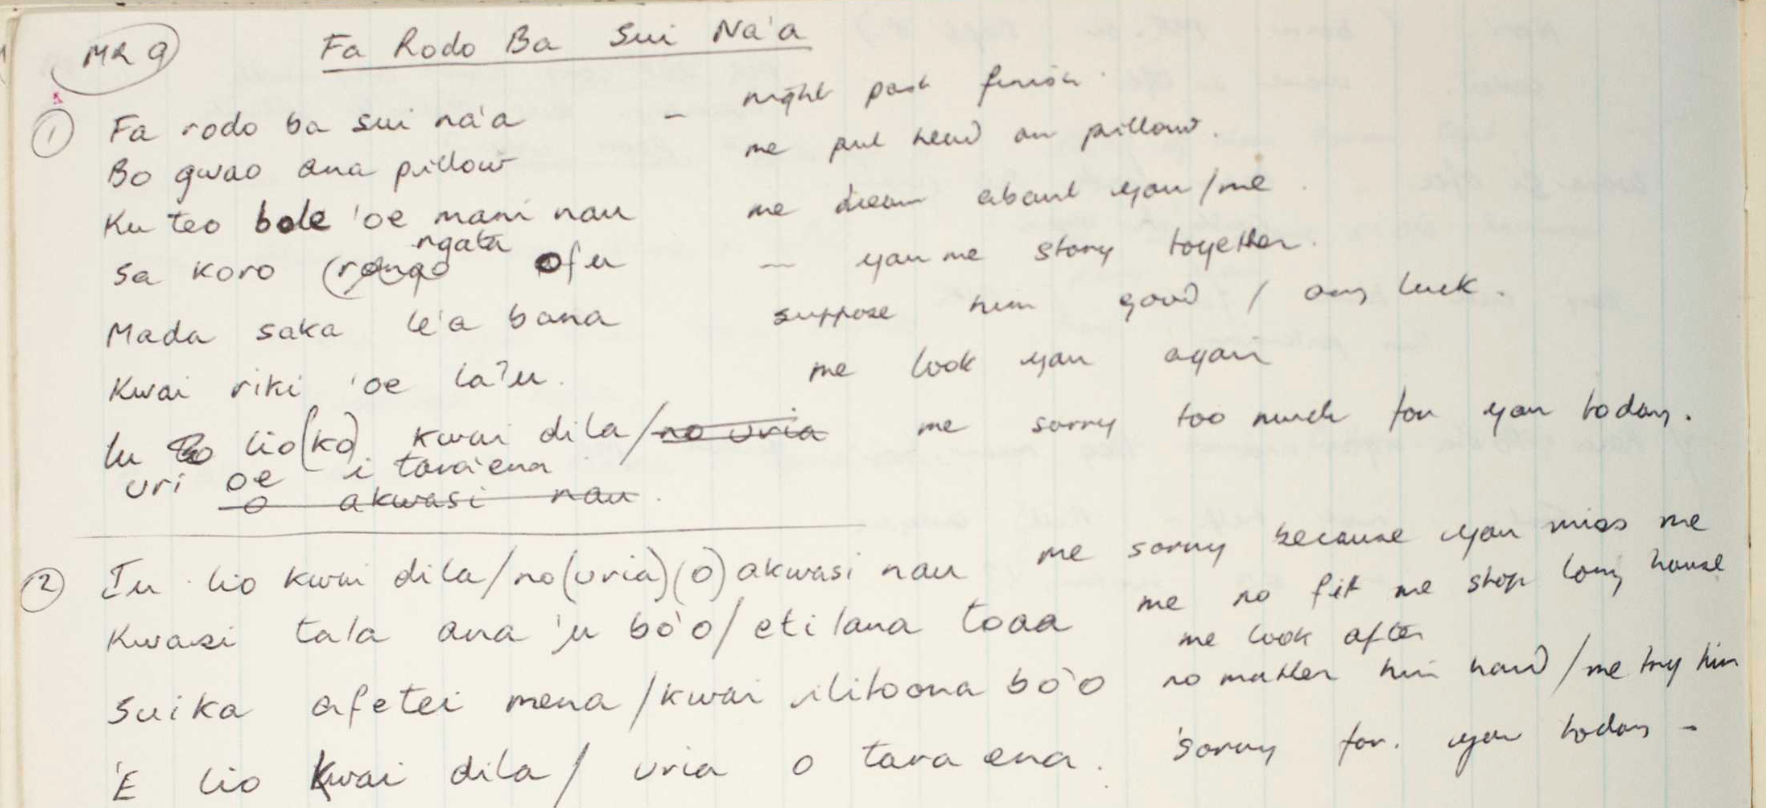 MR 9 Fa Rodo Ba Sui Na'a
① Fa rodo ba sui na'a - night past finish
Bo gwao ana pillow me put head on pillow.
Ku teo bole 'oe mani nau me dream about you/me.
ngata
Sa koro (rongo ofu - you me story together.
Mada saka le'a bana suppose him good / any luck.
Kwai riki 'oe la'u. me look you again
Iu lio (ko) kwai dila/no uria me sorry too much for you today.
uri oe i tara'ena
o akwasi nau.
② Iu lio kwai dila/no (uria) (o) akwasi nau me sorry because you miss me
Kwasi tala ana 'u bo'o/etilana toaa me no fit me stop long house
me look after
Suika afetei mena/kwai ilitoona bo'o no matter him hard/me try him
'E lio kwai dila/ uria o tara ena. sorry for. you today -